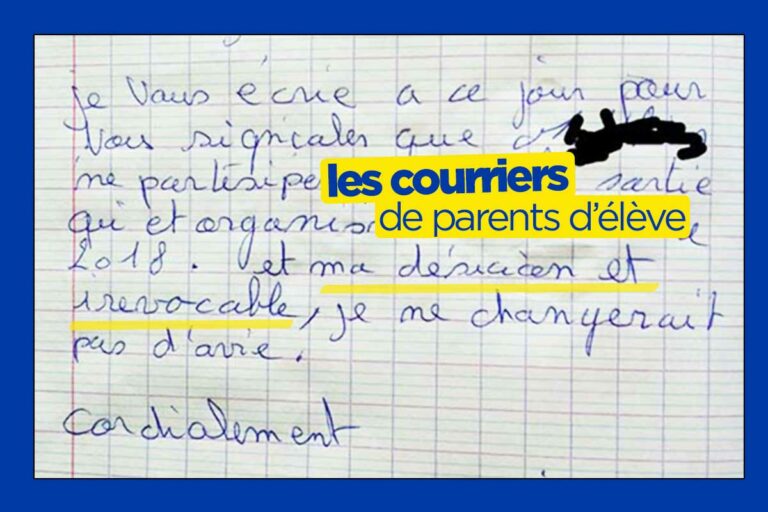 je vous écrie a ce jour pour
vous signeales que
ne partisipe
les courriers
sartie
qui et organis
de parents d'élève
e
2018. et ma désicien et
irevocable, je ne changerait
pas d'avie.
Cordialement